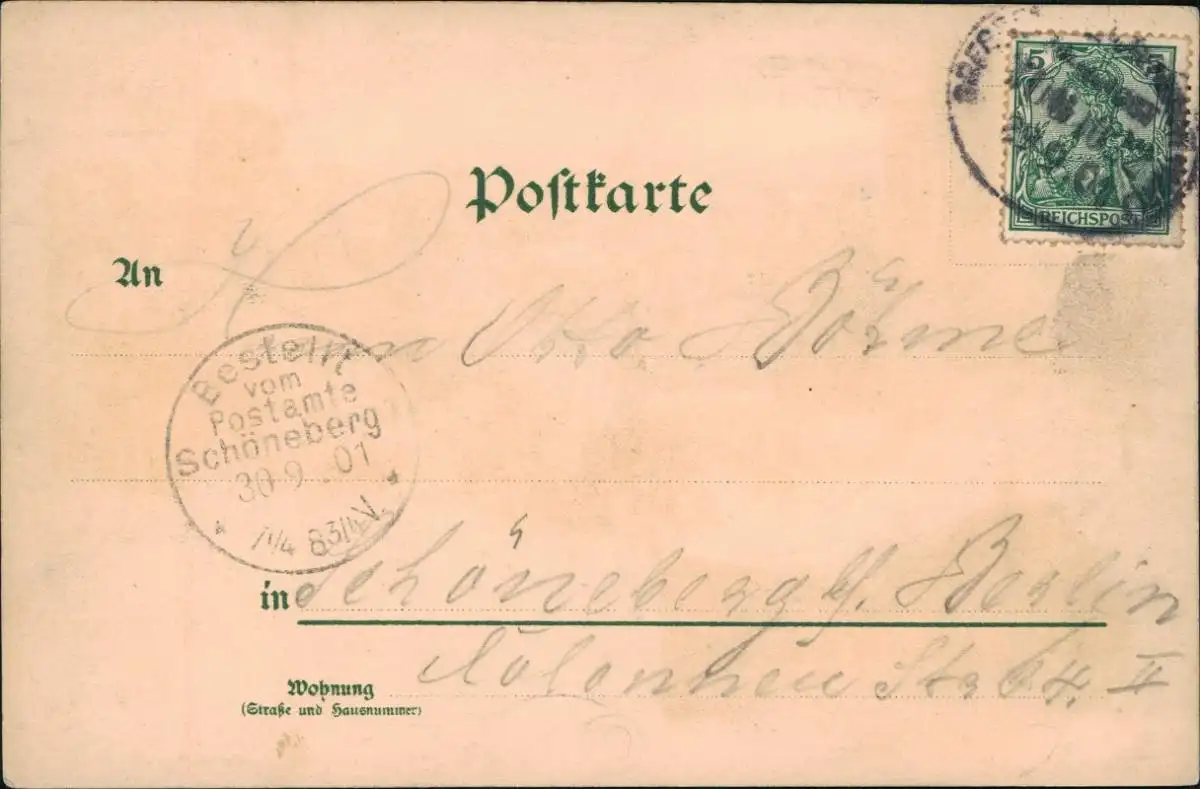 5 5
REICHSPOST
Postkarte
An
Herrn Otto Böhme
Bestellt
vom
Postamte
Schöneberg
30 9 . 01
* 7 1/4 8 3/4 V. *
in Schöneberg b/. Berlin
Wohnung
(Straße und Hausnummer)
Str. II